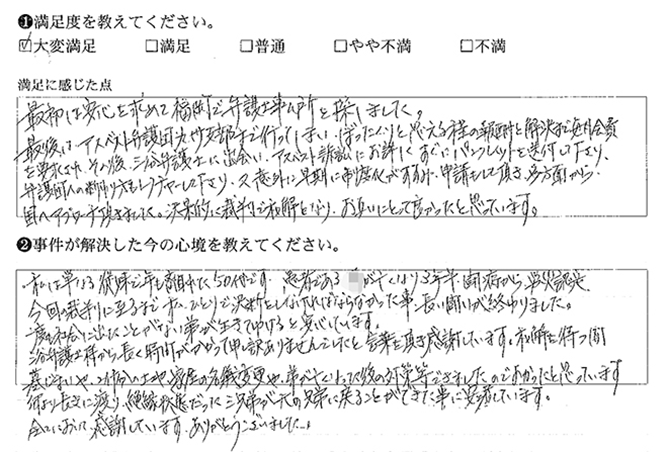 ❶満足度を教えてください。
☑大変満足 □満足 □普通 □やや不満 □不満
満足に感じた点
最初は安心を求めて福岡で弁護士事ム所を探しました。
最後はアスベスト弁護団大 支部まで行ってしまい、ぼったくりと思える程の報酬と解決まで毎月会費
を要求され、その後、三 弁護士に出会い、アスベスト訴訟にお詳しくすぐにパンフレットを送付して下り、
弁護団への断り方もレクチャーして下り、又意外に早期に 申請もして頂き、多方面から
国へアプローチ頂きました。結果的に裁判で和解となり、お互いにとって良かったと思っています。
❷事件が解決した今の心境を教えてください。
私は単なる 50代です。患者である が亡くなり3年半、闘病から、労災認定、
今回の裁判に至るまで私ひとりで決断をしなければならなかった事、長い闘いが終わりました。
一度も社会に出たことがない弟が生きてゆけると安心しています。
三 弁護士様から長く時間がかかって申し訳ありませんでしたと言葉を頂き感謝しています。和解を待つ間
墓じまいや、 土地や家屋の名義変更や、弟が亡くなった後の対策等できましたのでよかったと思っています
何より長きに渡り、絶縁状態だった三兄弟が元の兄弟に戻ることができた事に安堵しています。
全てにおいて感謝しています。ありがとうございました。